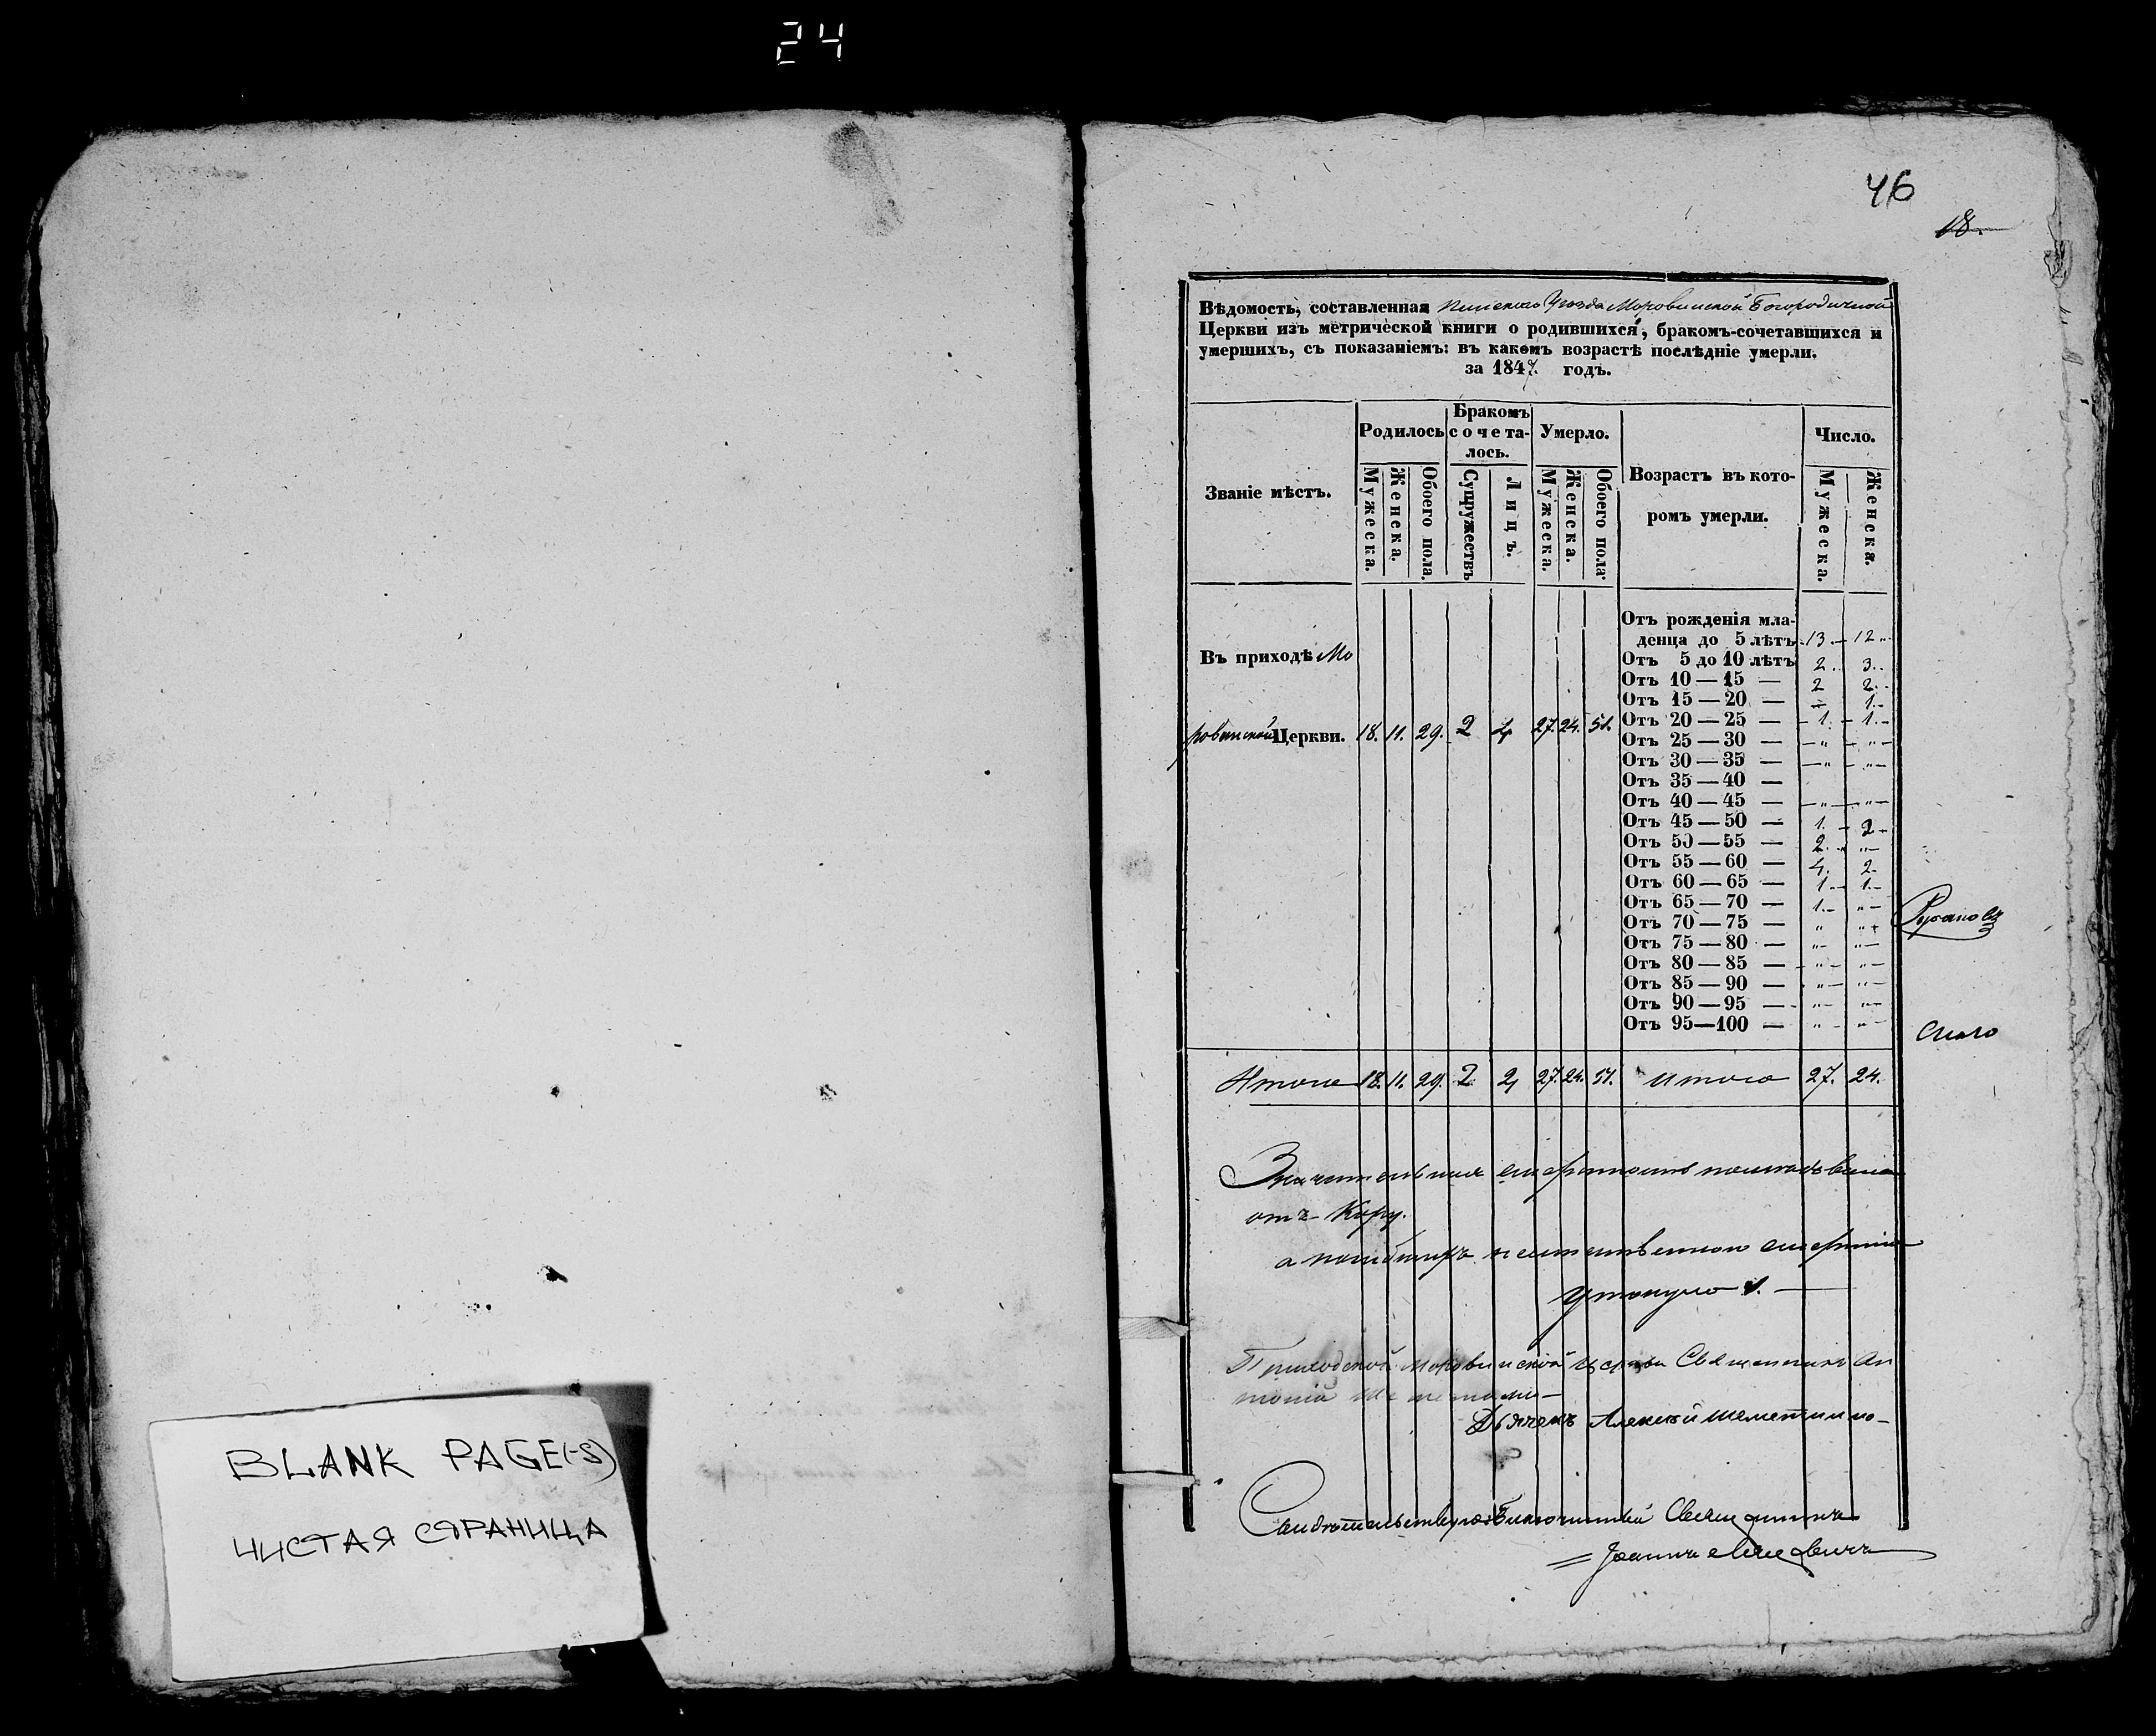 24
46
18.
Вѣдомость, составленная Пинскаго Уѣзда Моровинской Богородичной
Церкви изъ метрической книги о родившихся, бракомъ-сочетавшихся и
умершихъ, съ показаніемъ: въ какомъ возрастѣ послѣдніе умерли.
за 1847. годъ.
Званіе мѣстъ.
Родилось
Бракомъ
сочета-
лось.
Умерло.
Возрастъ въ кото-
ромъ умерли.
Число.
Мужеска.
Женска.
Обоего пола.
Супружествъ
Лицъ.
Мужеска.
Женска.
Обоего пола
Мужеска.
Женска.
Въ приходѣ Мо
ровинской Церкви. 18. 11. 29. 2 4 27. 24. 51.
Отъ рожденія мла-
денца до 5 лѣтъ 13. — 12 „
Отъ 5 до 10 лѣтъ 2.. 3..
Отъ 10 — 15 — 2 2.
Отъ 15 — 20 — „ 1.
Отъ 20 — 25 — 1. — 1. —
Отъ 25 — 30 — „ — „ —
Отъ 30 — 35 — „ — „ —
Отъ 35 — 40 —
Отъ 40 — 45 — „ — „ —
Отъ 45 — 50 — 1. — 2 —
Отъ 50 — 55 — 2. „ —
Отъ 55 — 60 — 4. 2.
Отъ 60 — 65 — 1 — 1. —
Отъ 65 — 70 — 1. — „ —
Отъ 70 — 75 — „ „
Отъ 75 — 80 — „ — „ —
Отъ 80 — 85 — „ — „ —
Отъ 85 — 90 — „ — „ —
Отъ 90 — 95 — „ — „ —
Отъ 95—100 — „ — „ —
Итого 18. 11. 29. 2 4 27. 24. 51. Итого 27. 24.
Значительная смертность
отъ Кору.
а смертію
утонуло 1. —
Приходской Моровинской Церкви Священникъ Ан
тоній
Дьячекъ Алексѣй
Свидѣтельствую: Благочинный Священникъ
Іоаннъ
BLANK PAGE(-S)
ЧИСТАЯ СТРАНИЦА